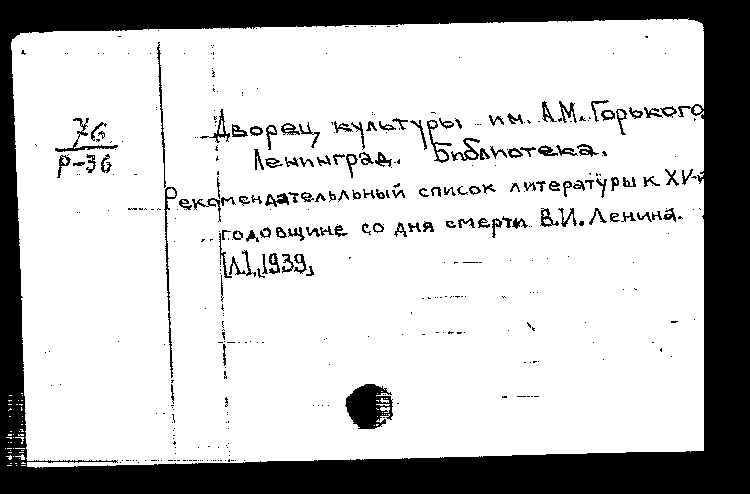 7б
Р-36
Дворец культуры им. А.М. Горького
Ленинград. Библиотека.
Рекомендательльный список литературы к XV-й
годовщине со дня смерти В.И. Ленина.
[Л.], 1939,